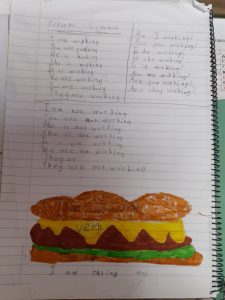 I am working
You are working
He is working
She is working
It is working
We are working
You are working
They are working
Am I working?
Are you working?
Is he working?
Is she working?
Is it working?
Are we working?
Are you working?
Are they working?
I am not working
You are not working
He is not working
She is not working
It is not working
We are not working
They are not working
verb
I am